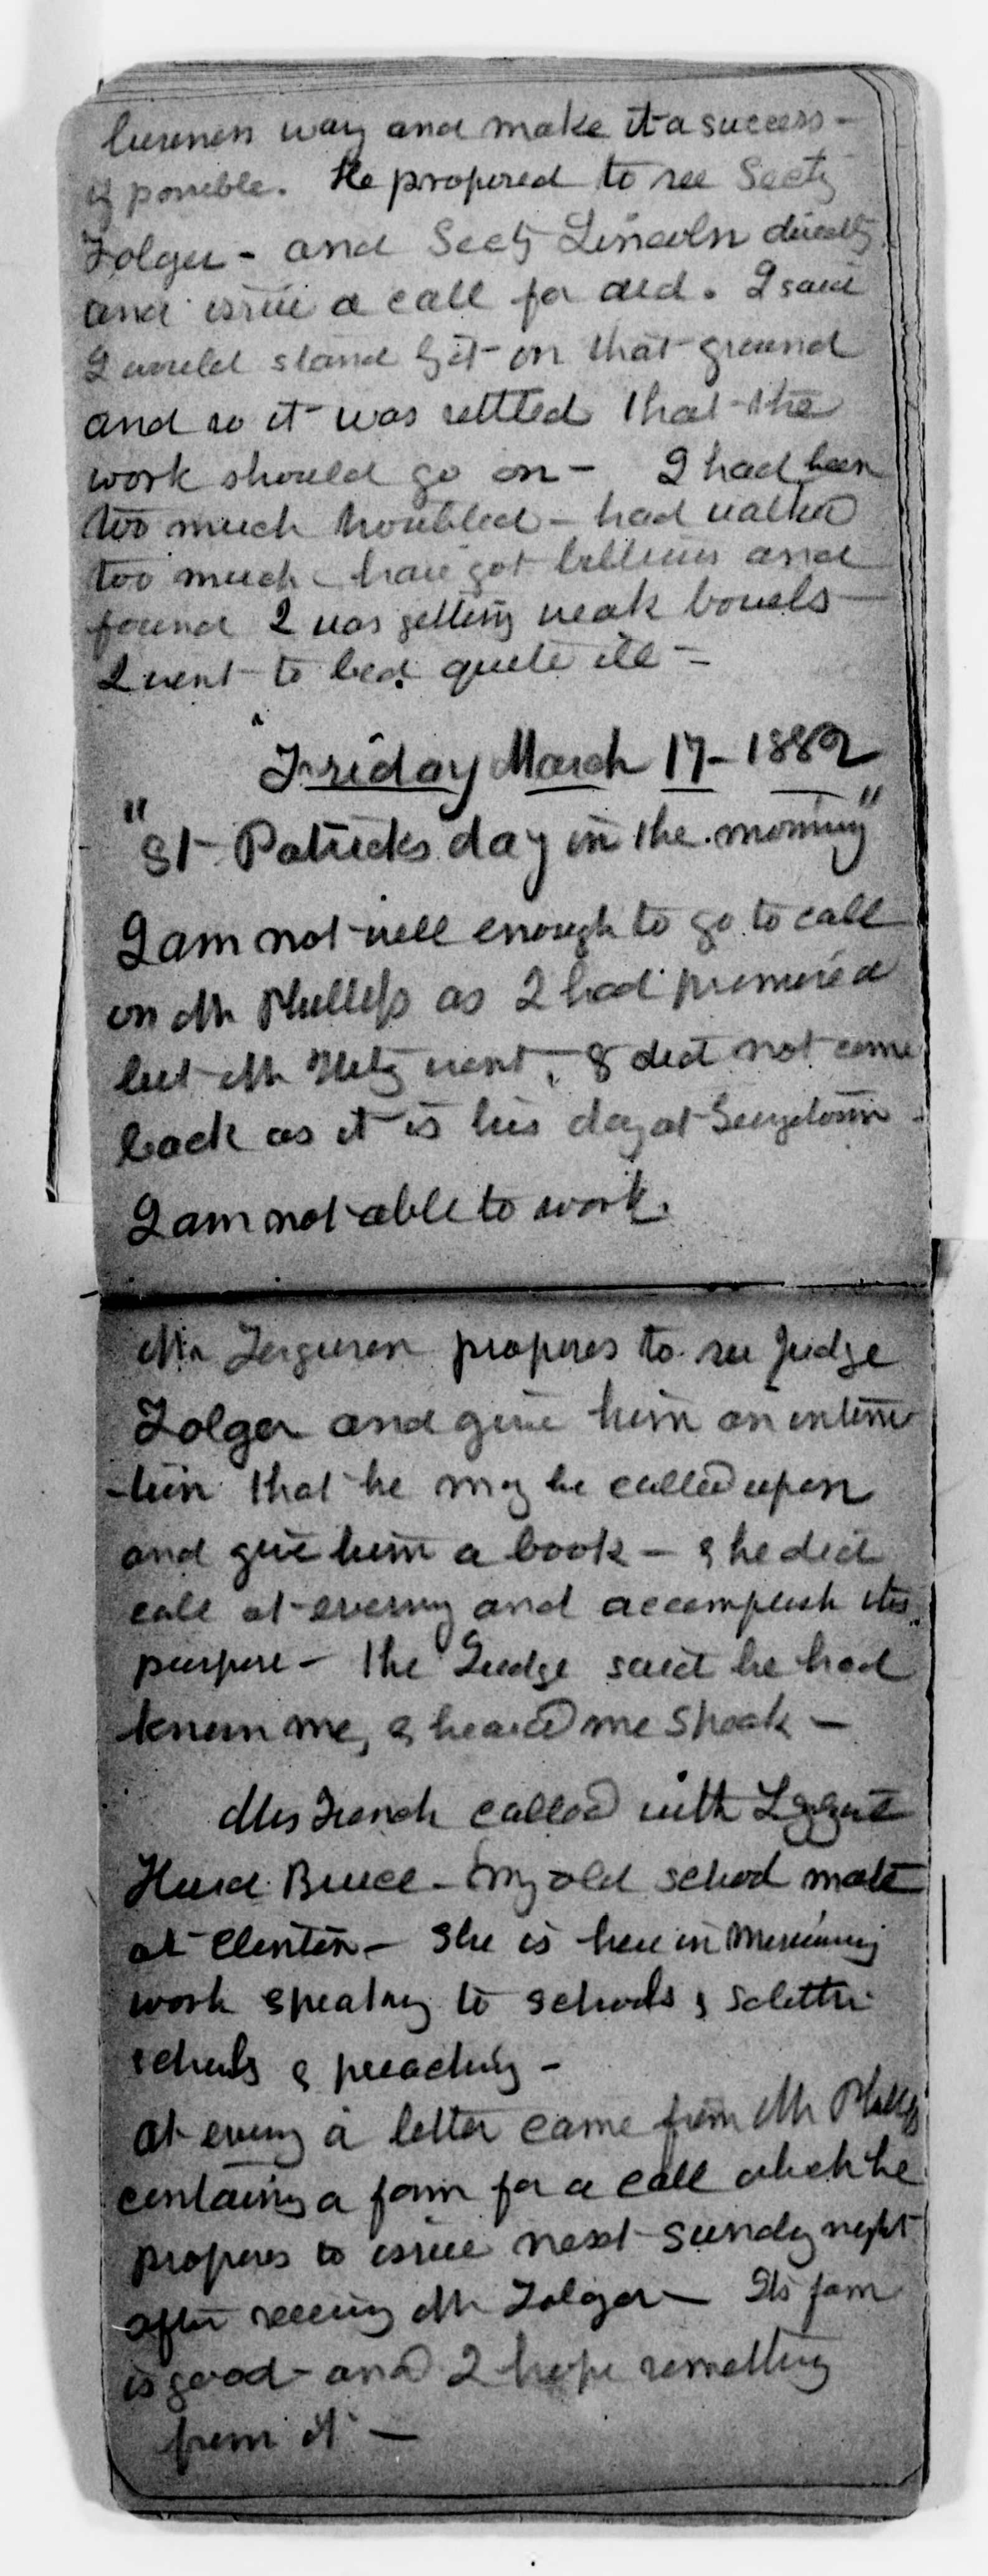 business way and make it a success -
if possible. He proposed to see Secty
Folger - and Secty Lincoln directly
and issue a call for aid. I said
I would stand by it on that ground
and so it was settled that the
work should go on - I had been
too much troubled - had walked
too much have got billious and
found I was getting weak bowels -
I went to bed quite ill -
Friday March 17 - 1882
"St Patricks day in the morning"
I am not well enough to go to call
on Mr Phillips as I had promised
but Mr went, & did not come
back as it is his day at Georgetown -
I am not able to work.
Mr Ferguson proposes to see Judge
Folger and give him an intima
-tion that he may be called upon
and give him a book - & he did
call at evening and accomplish his
purpose - The Judge said he had
known me, & heard me speak -
Mrs French called with
Hurd Bruce - my old school mate
at Clinton - She is here in Missionary
work speaking to schools &
schools & preaching -
at evening a letter came from Mr Phillips
containing a form for a call which he
proposes to issue next Sunday night
after seeing Mr Folger - Its form
is good - and I hope something
from it -